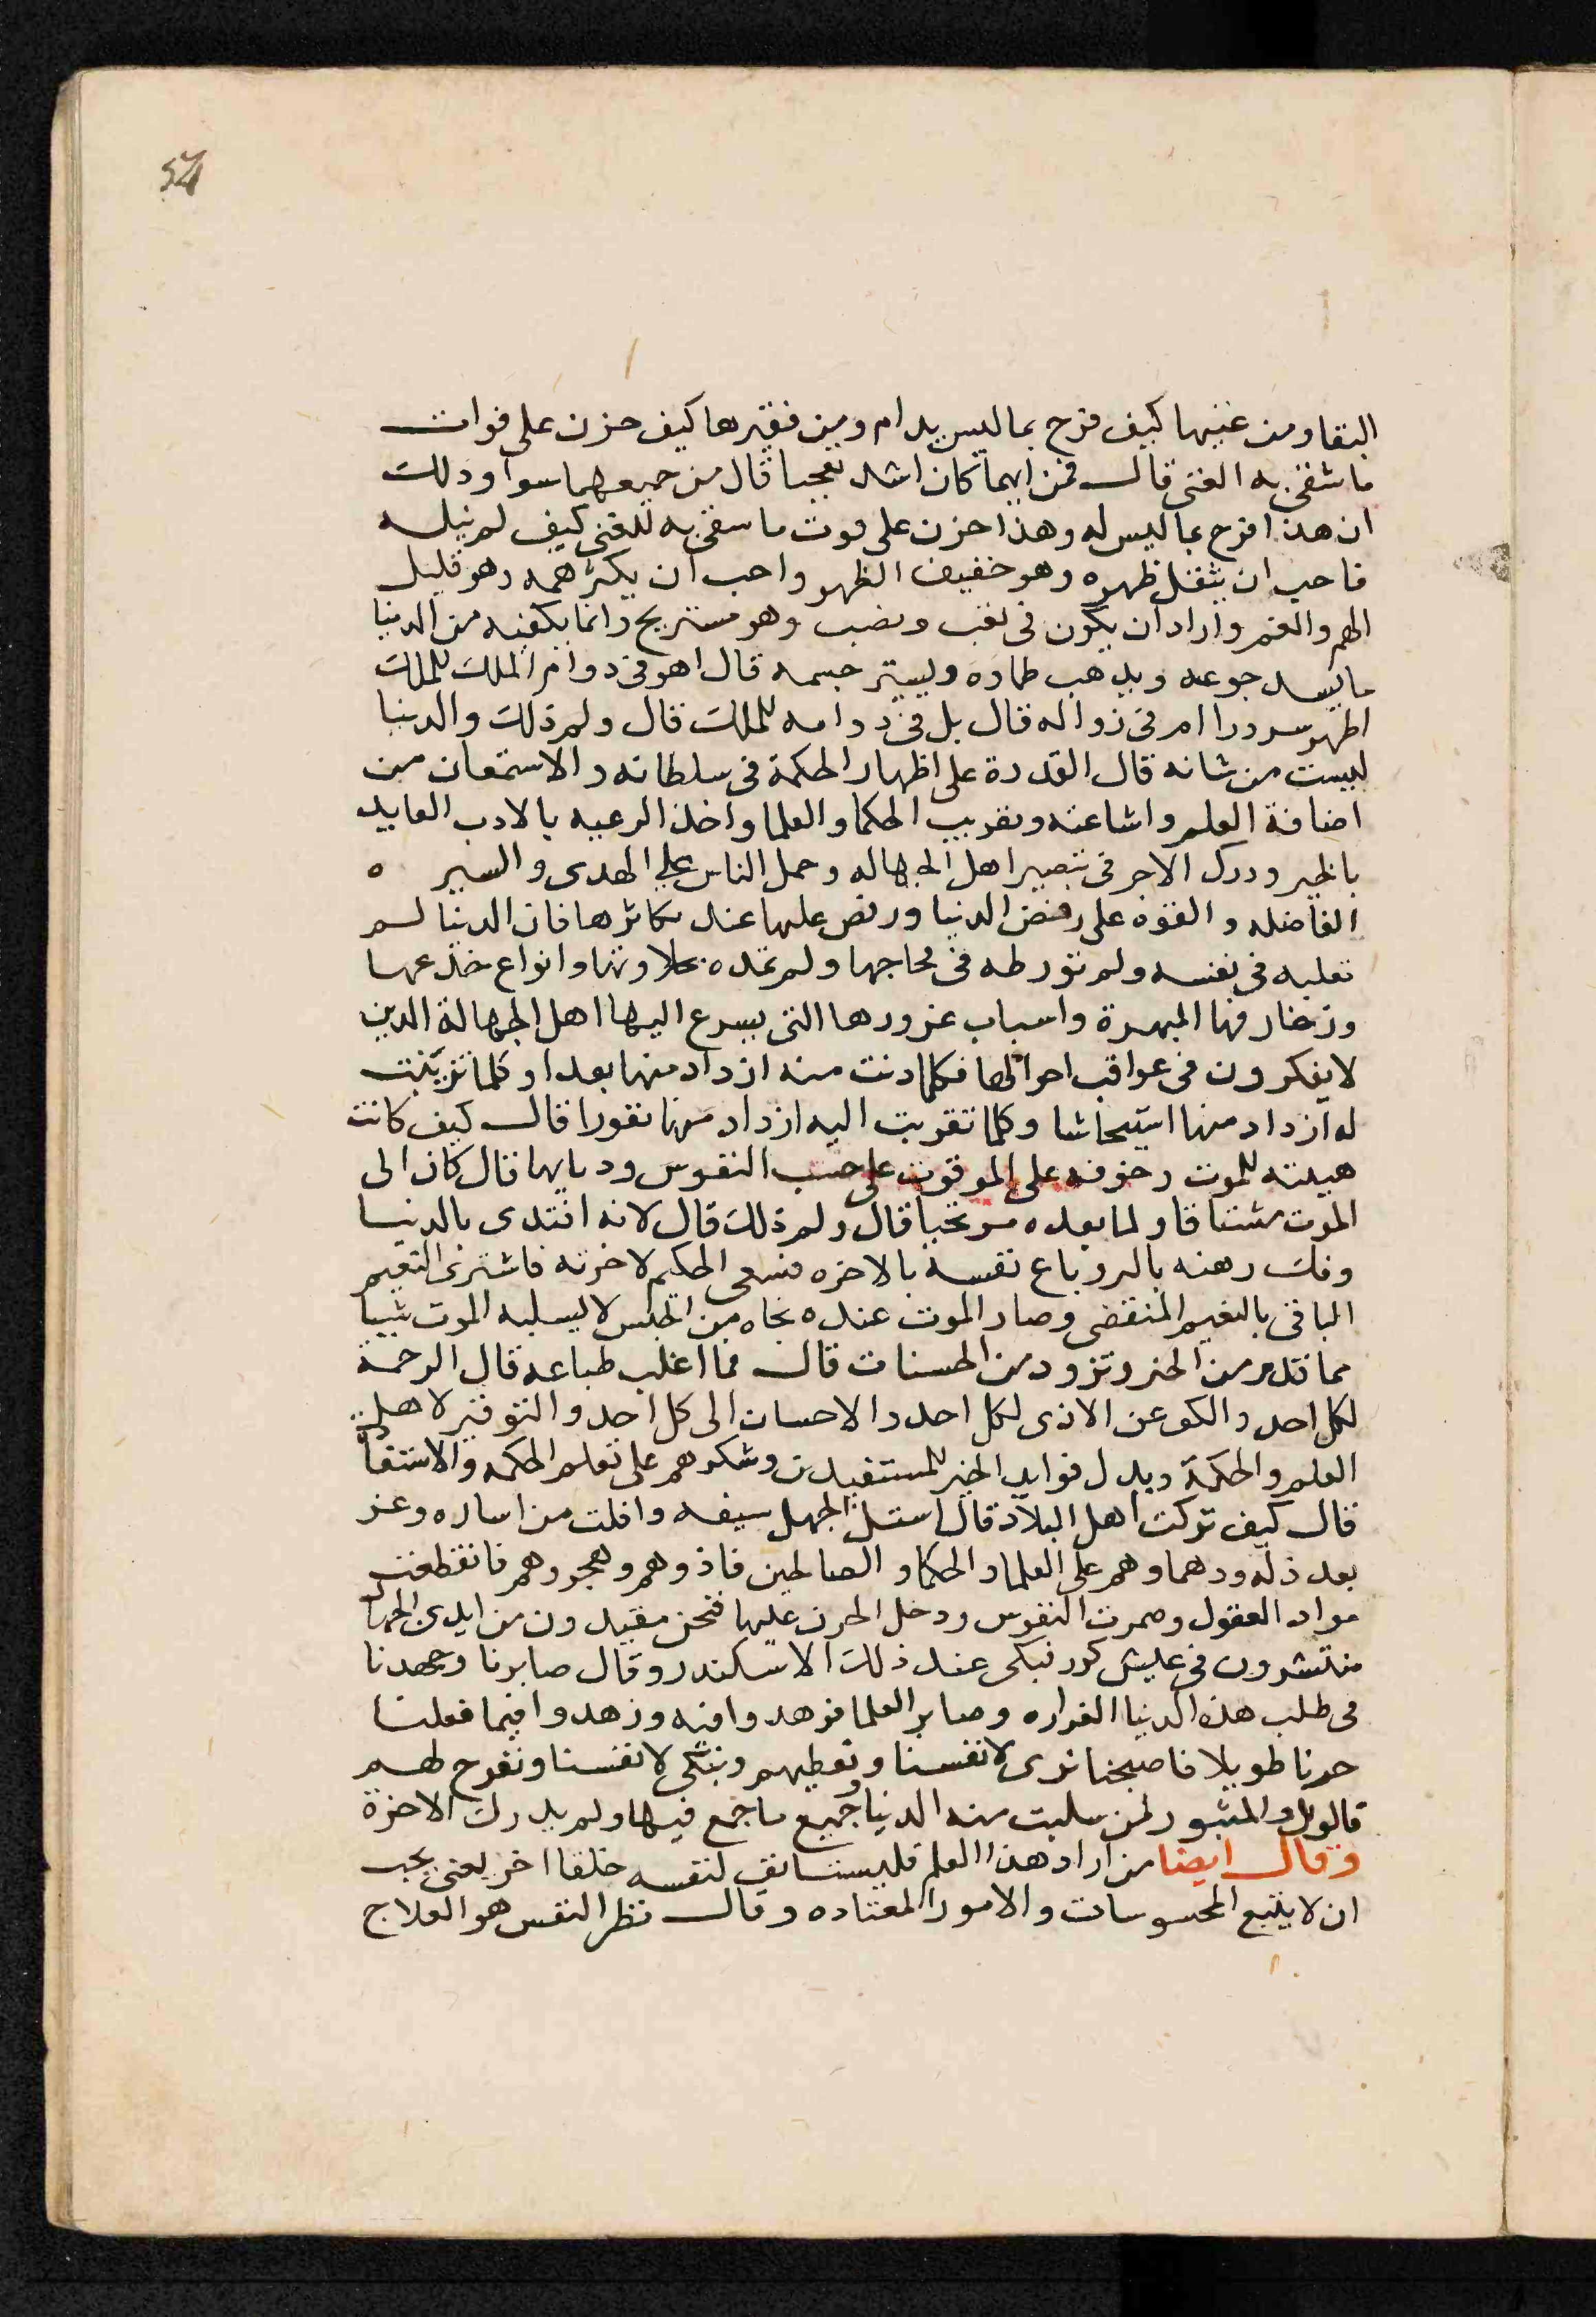 54
البقا ومن غنيها كيف فرح بما ليس يدام ومن فقيرها كيف حزن على فوات
ما شقى به الغنى قال فمن ايهما كان اشد تعجبا قال من جميعهما سوا وذلك
ان هذا فرح بما ليس له وهذا حزن على فوت ما شقى به الغنى كيف لم ينله
فاحب ان يثقل ظهره وهو خفيف الظهر واحب ان يكثر همه وهو قليل
الهم والغم واراد ان يكون فى تعب ونصب وهو مستريح وانما يكفيه من الدنيا
ما يسد جوعه ويذهب ظماوه ويستر جسمه قال اهو فى دوام الملك للملك
اظهر سرورا ام فى زواله قال بل فى دوامه للملك قال ولم ذلك والدنيا
ليست من شانه قال القدرة على اظهار الحكمة فى سلطانه والاستمعان من
اضافة العلم واشاعته وتقريب الحكما والعلما واخذ الرعيه بالادب العايد
بالخير ودرك الاجر فى تبصير اهل الجهاله وحمل الناس على الهدى والسير ه
الفاضله والقوه على رفض الدنيا ورفض عليها عند تكاثرها فان الدنيا لم
تغلبه فى نفسه ولم تورطه فى محاجها ولم تمده بحلاوتها وانواع خدعها
وزخارفها المبهرة واسباب غرورها التى يسرع اليها اهل الجهالة الذين
لا يفكرون فى عواقب احوالها فكلما دنت منه ازداد منها بعدا وكلما تزينت
له ازداد منها استيحاشا وكلما تقربت اليه ازداد منها نفورا قال كيف كانت
هيبته للموت وخوفه على الموقوت على حسب النفوس ودبابها قال كان الى
الموت مشتاقا ولما بعده مرتجيا قال ولم ذلك قال لانه افتدى بالدنيا
وفك رهنه بالبر وباع نفسه بالاخره فسعى الحكيم لاخرته فاشترى النعيم
الباقى بالنعيم المنقضى وصار الموت عنده نجاه من الحبس لا يسلبه الموت شيا
مما قدم من الخير وتزود من الحسنات قال فما اغلب طباعه قال الرحمة
لكل احد والكف عن الاذى لكل احد والاحسان الى كل احد والتوقير لاهل
العلم والحكمة وبذل فوايد الخير للمستفيدين وشكرهم على تعلم الحكمه والاستقا
قال كيف تركت اهل البلاد قال استل الجهل سيفه وافلت من اساره وعز
بعد ذله ودهما وهم على العلما والحكما و الصالحين فاذوهم وهجروهم فانقطعت
مواد العقول وصمرت النفوس ودخل الحزن عليها فنحن مقيدون من ايدى الجهال
منتشرون فى عيش كدر فبكى عند ذلك الاسكندر وقال صابرنا وجهدنا
فى طلب هذه الدنيا الغراره وصابر العلما فزهدوا فيه وزهدوا فيما فعلنا
حزنا طويلا فاصبحنا نرى لانفسنا ونعطيهم ونبكى لانفسنا ونفرح لهم
فالويل والثبور لمن سلبت منه الدنيا جميع ما جمع فيها ولم يدرك الاخرة
وقال ايضا من اراد هذا العلم فليستانف لنفسه خلقا اخر يعنى يجب
ان لا يتبع المحسوسات والامور المعتاده وقال نظر النفس هو العلاج